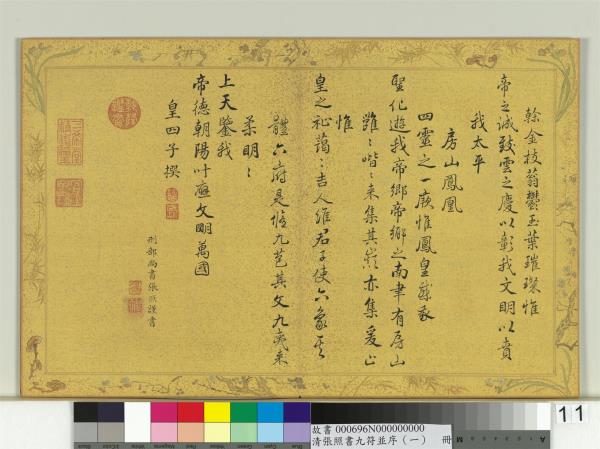 翰金枝蓊鬱玉葉璀璨惟
帝之誠致雲之慶以彰我文明以賁
我太平
房山鳳凰
四靈之一厥惟鳳皇葳蕤
聖化遊我帝鄉帝鄉之南聿有房山
雝雝喈喈來集其嶺亦集爰止
惟
皇之祉藹藹吉人維君子使六象其
體六府是脩九苞其文九夷來
柔明明
上天鑒我
帝德朝陽叶應文明萬國
皇四子撰
刑部尚書張照謹書
故書 000696N000000000
清張照書九符並序(一) 冊
11